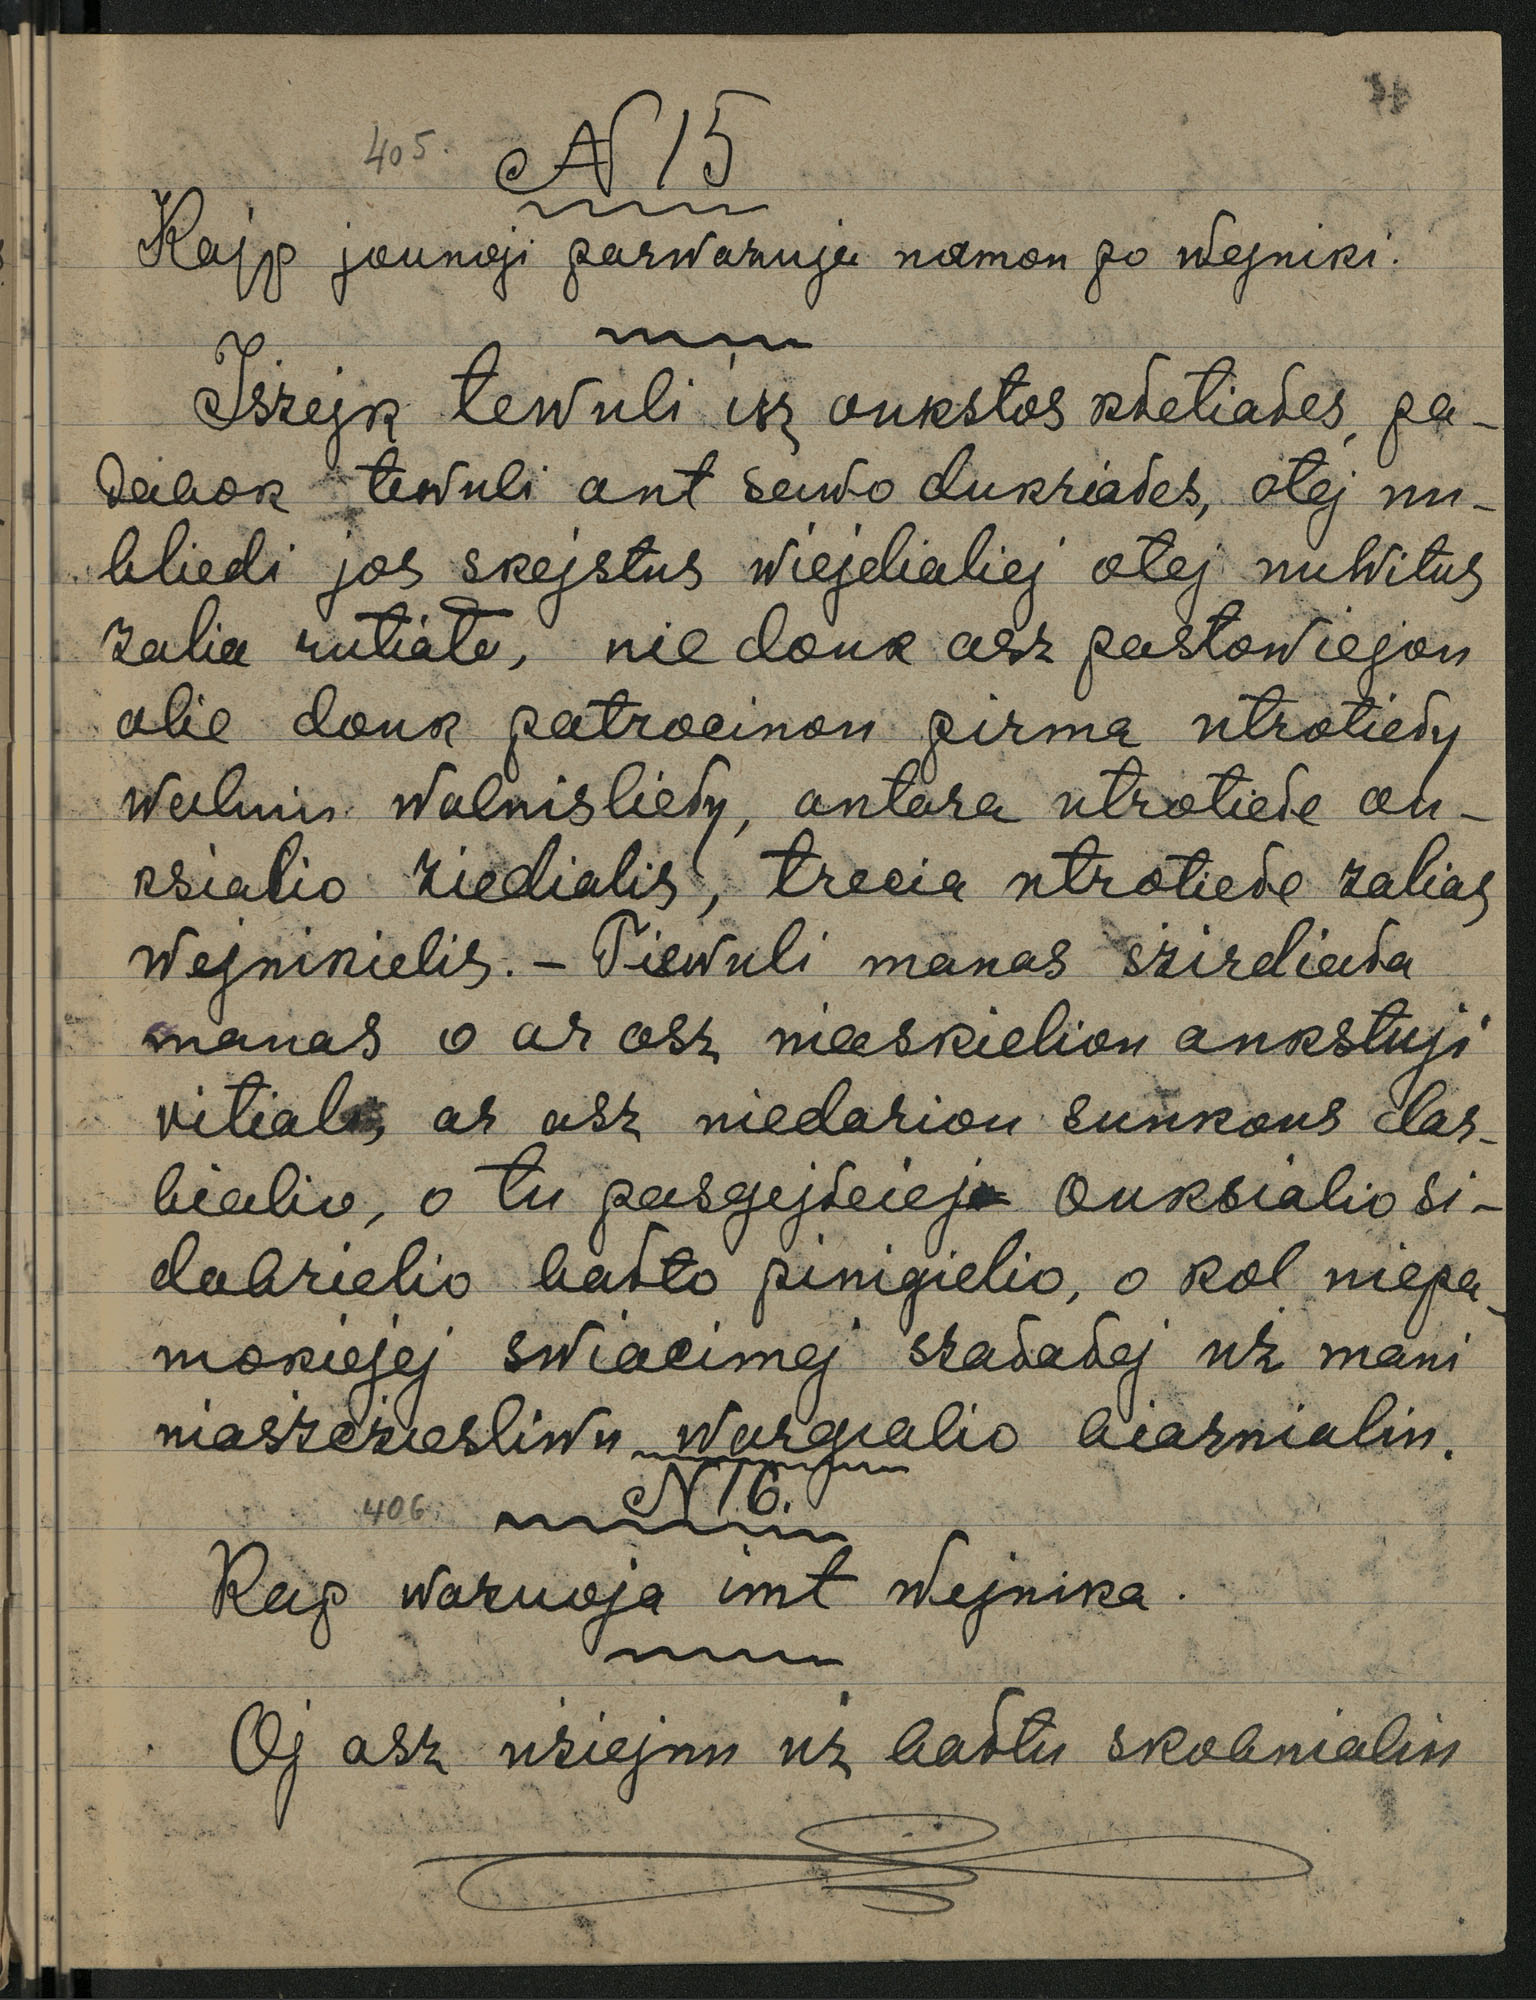 405. N 15
Kajp jounoji parwaruja namon po wejniki.
Iszejk tewuli isz aukstos kłetiałes, pa-
dabok tewuli ant sawo dukriałes, otej nu-
bliedi jos skejstus wiejdialiej otej nuwitus
zalia rutiała, nie douk asz pastowiejou
alie douk patrocinou pirma utrotiedy
walnu walnisliedy, antara utrotiede au-
ksialio ziedialis, trecia utrotiede zalias
wejnikielis. – Tiewuli manas szirdiała
manas o ar asz nieskieliou ankstuji
ritialį, ar asz niedariou sunkaus dar-
bialio, o tu pasgejdeiej auksialio si-
dabrielio bałto pinigielio, o kol niepa-
mokiejej swiacimej szaładej uż mani
niaszcziesliwu wargialio biarnialiu.
406. N 16.
Kap waruoja imt wejnika.
Oj asz użiejnu uż bałtu skobnialiu